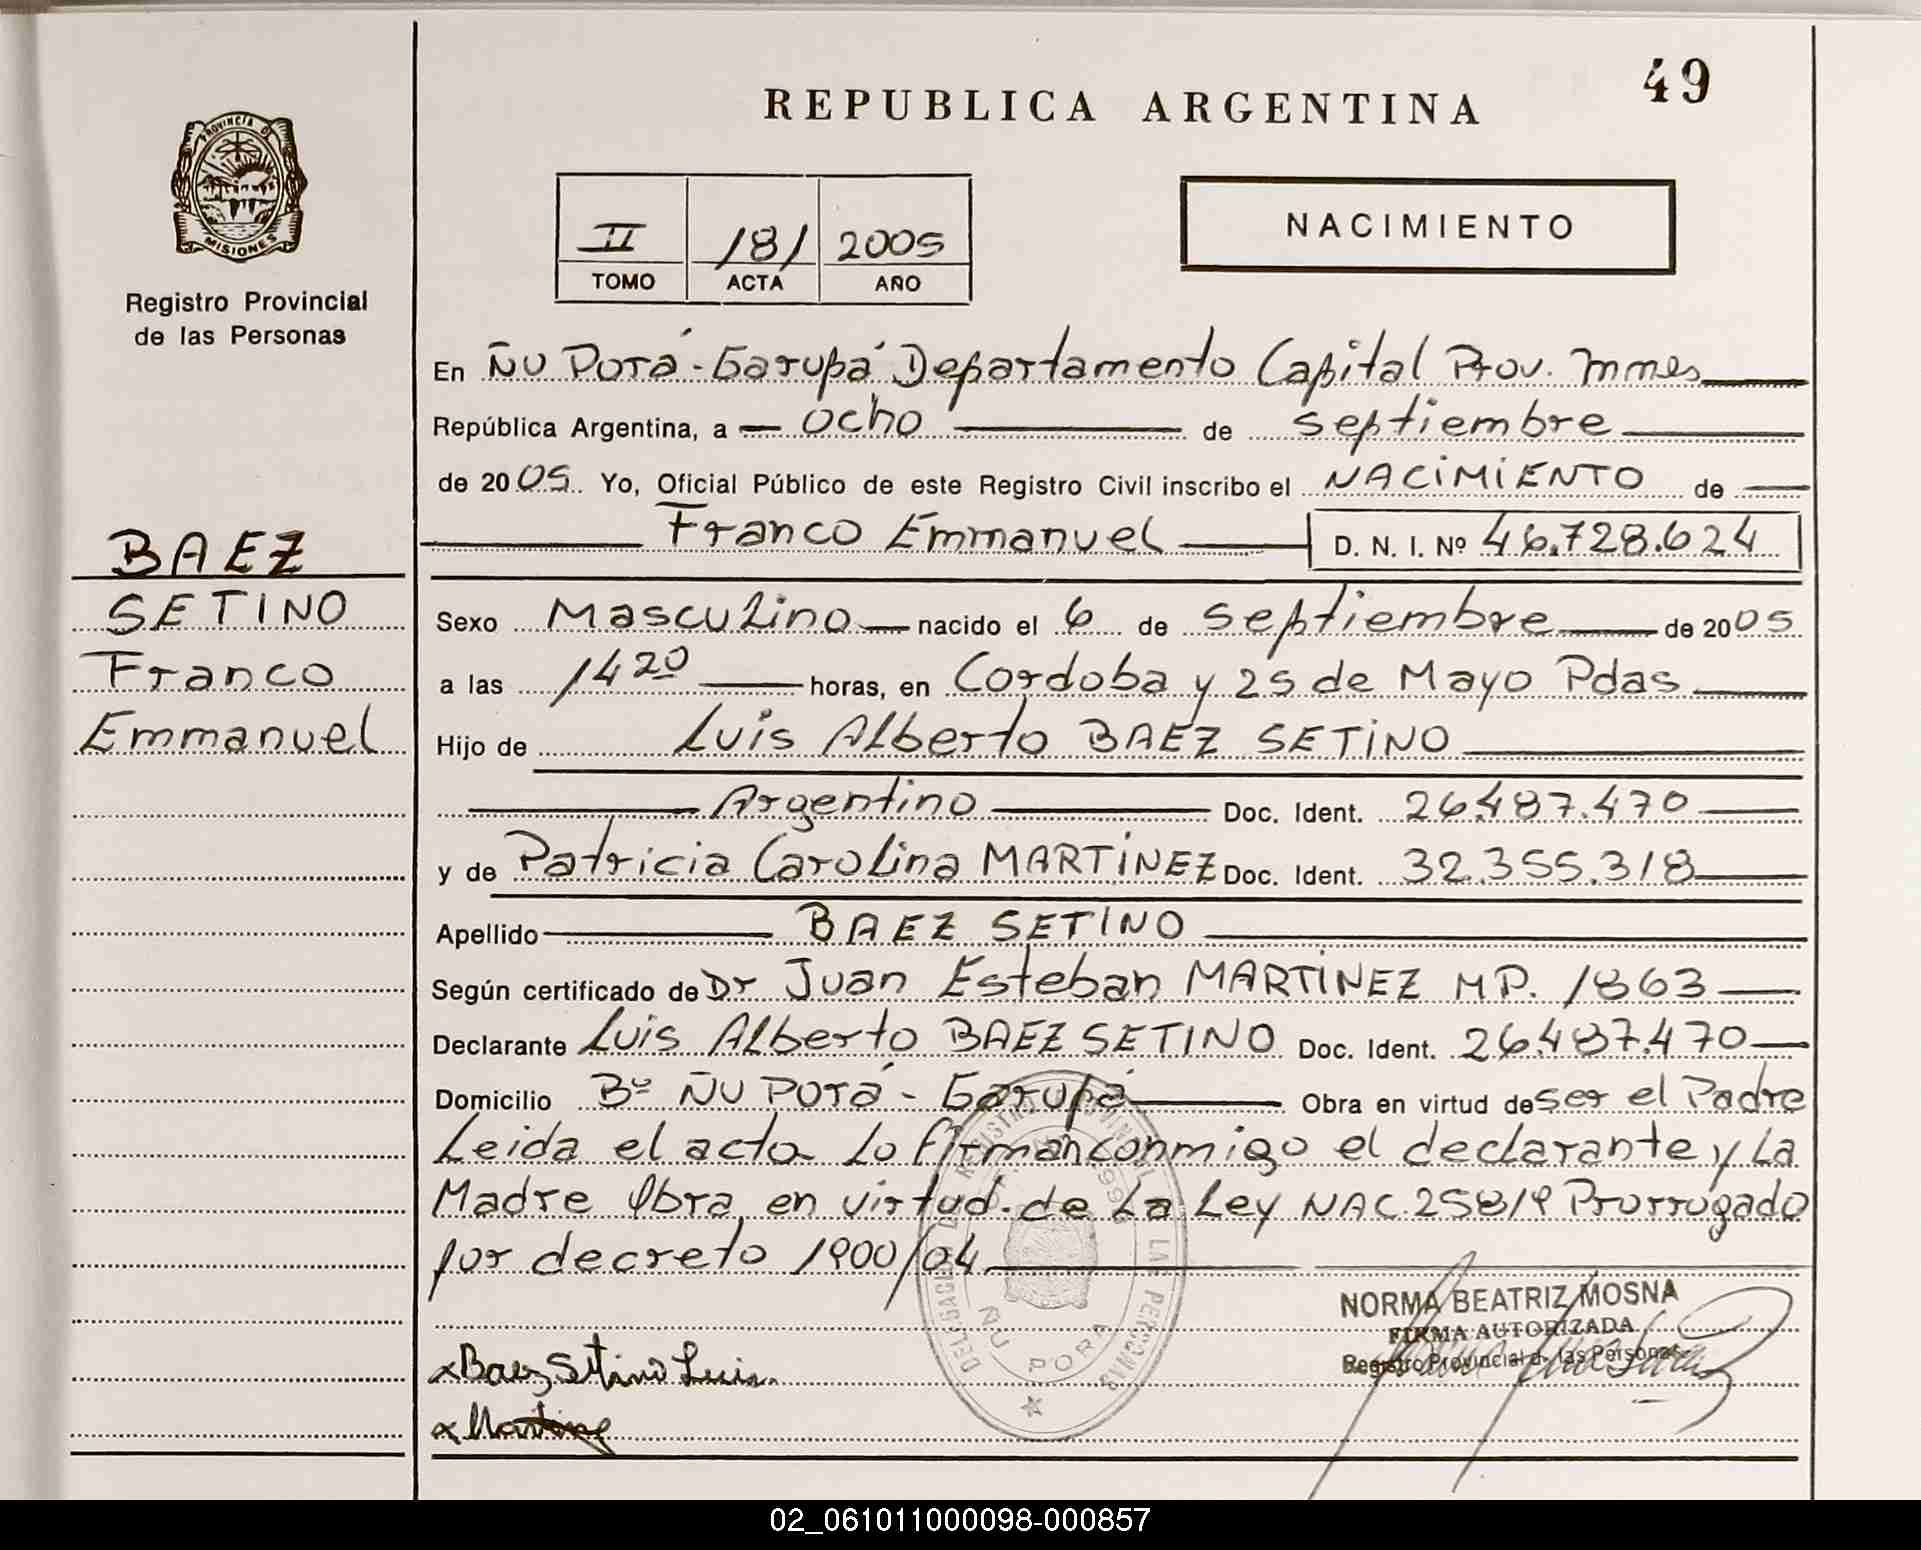 49
REPUBLICA ARGENTINA
PROVINCIA DE
MISIONES
Registro Provincial
de las Personas
II 181 2005
TOMO ACTA AÑO
NACIMIENTO
En Ñu Porá - Garupá Departamento Capital Prov. Mnes
República Argentina, a ocho de septiembre
de 2005. Yo, Oficial Público de este Registro Civil inscribo el NACIMIENTO de
Franco Emmanuel D. N. I. Nº 46.728.624
BAEZ
SETINO
Franco
Emmanuel
Sexo Masculino nacido el 6 de septiembre de 2005
a las 14 20 horas, en Cordoba y 25 de Mayo Pdas
Hijo de Luis Alberto BAEZ SETINO
Argentino Doc. Ident. 26.487.470
y de Patricia Carolina MARTINEZ Doc. Ident. 32.355.318
Apellido BAEZ SETINO
Según certificado de Dr Juan Esteban MARTINEZ MP. 1863
Declarante Luis Alberto BAEZ SETINO Doc. Ident. 26.487.470
Domicilio Bº ÑU PORá - Garupá Obra en virtud de ser el Padre
Leida el acta lo firman conmigo el declarante y la
Madre Obra en virtud de la Ley NAC. 25819 Prorrugado
por decreto 1900/04
ÑU PORA
NORMA BEATRIZ MOSNA
FIRMA AUTORIZADA
Registro Provincial d. las Personas
x Baez Setino Luis
x Martinez
02_061011000098-000857